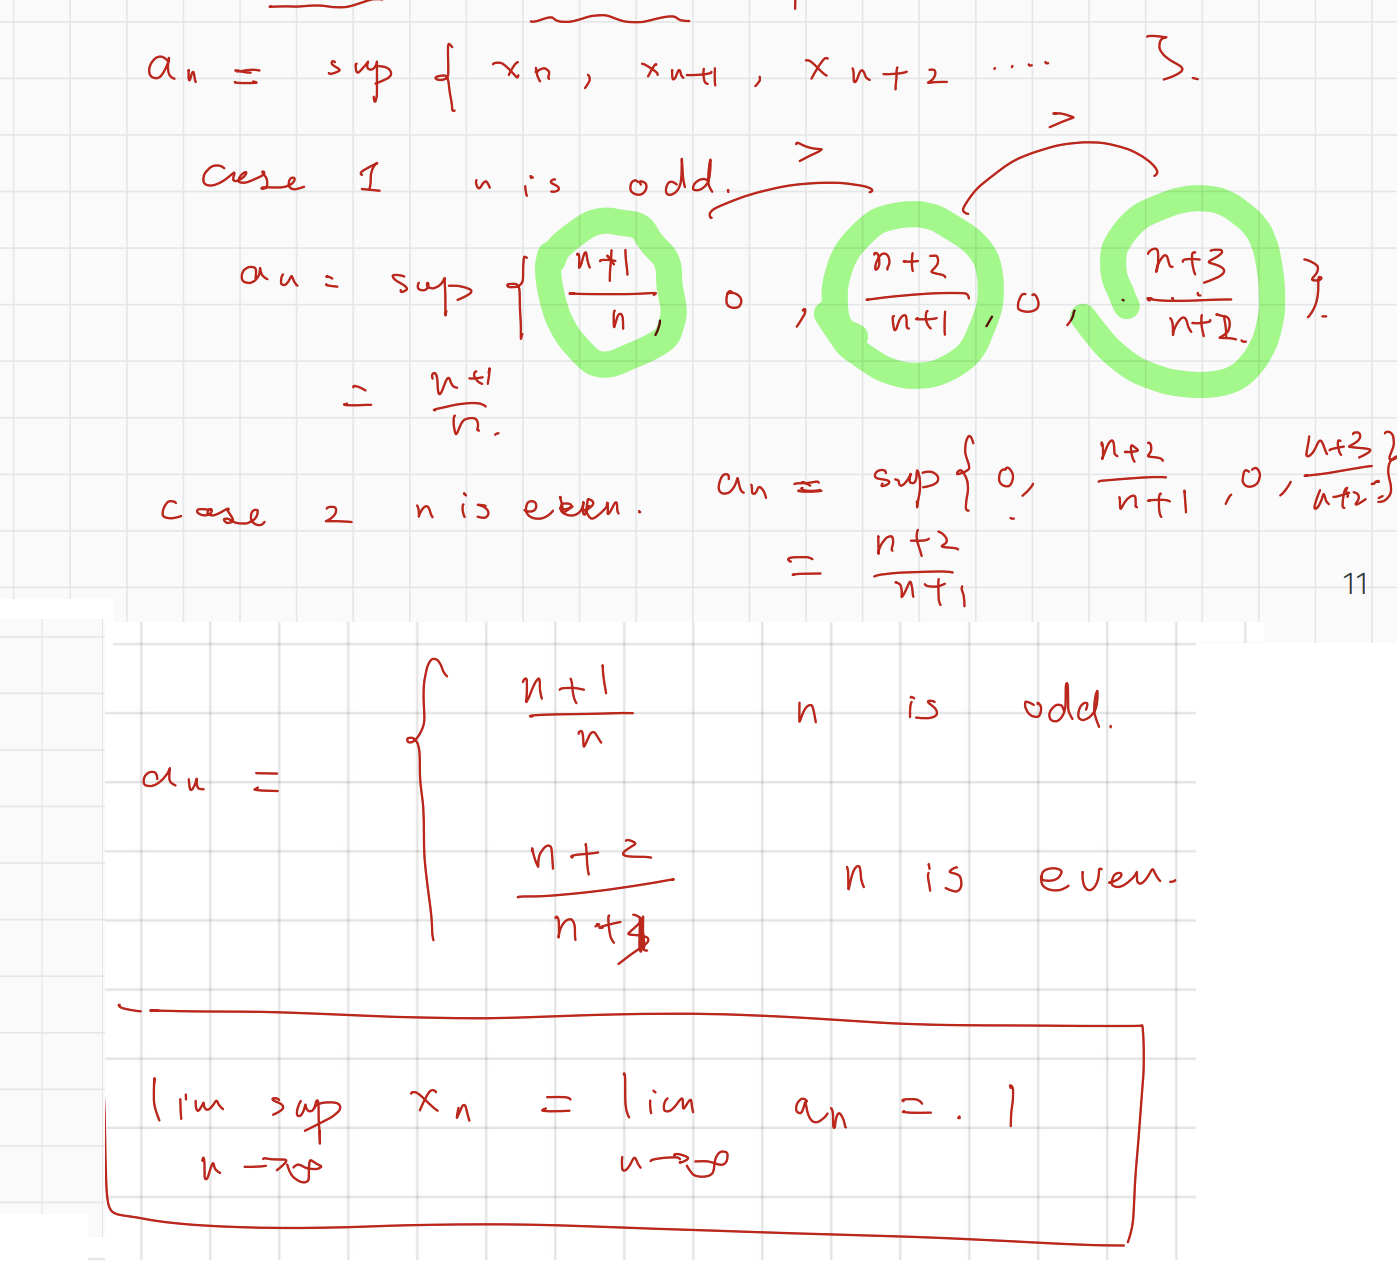 an = sup { xn , xn+1 , xn+2 .... }.
> >
case 1 n is odd.
an = sup { (n+1)/n , 0 , (n+2)/(n+1) , 0 , (n+3)/(n+2) }.
= (n+1)/n .
case 2 n is even. an = sup { 0 , (n+2)/(n+1) , 0 , (n+3)/(n+2) }
= (n+2)/(n+1)
11
an = { (n+1)/n n is odd.
(n+2)/(n+1) n is even.
lim sup n→∞ xn = lim n→∞ an = . 1